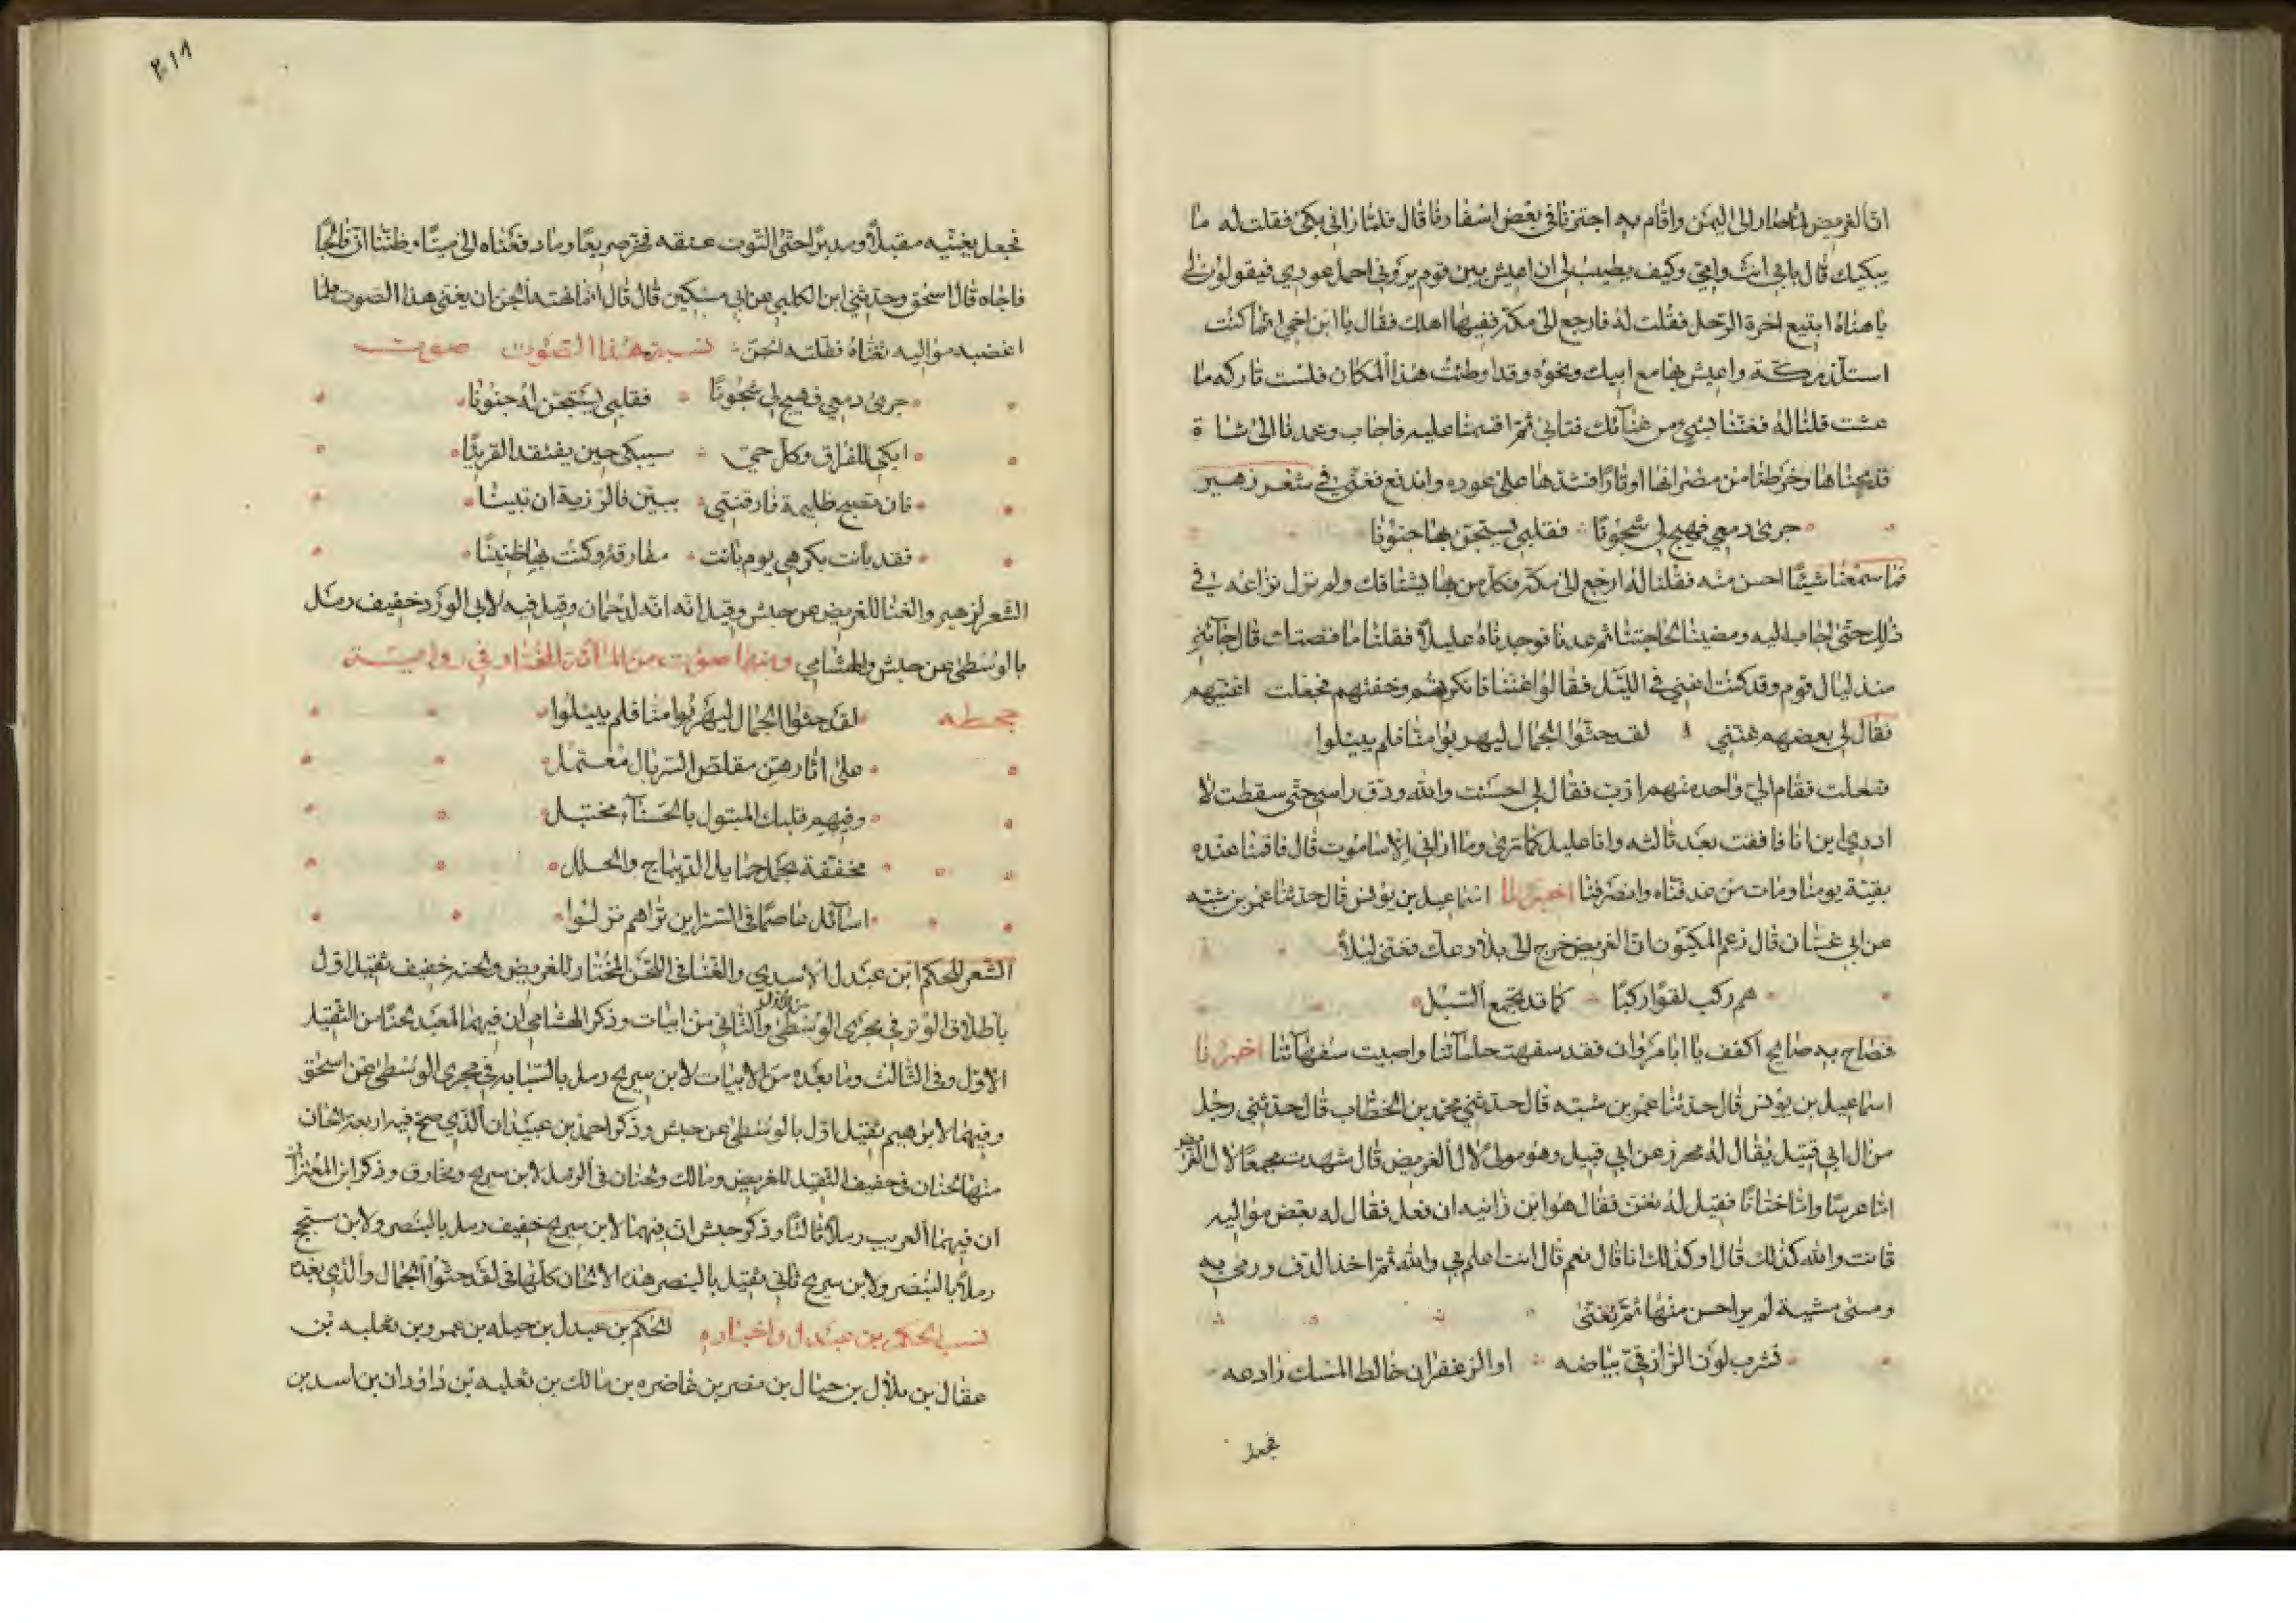 ان الغريض لما صار الى اليمن واقام به اجتزنا في بعض اسفارنا قال فلما راني بكى فقلت له ما
يبكيك قال بابي انت وامي وكيف يطيب لي ان اعيش بين قوم يروني احمل عودي فيقولون لي
يا هناه ابتيع اخرة الرحل فقلت له فارجع الى مكة ففيها اهلك فقال يا ابن اخي انما كنت
استلذ مكة واعيش بها مع ابيك ونحوه وقد اوطنت هذا المكان فلست تاركه ما
عشت قلنا له فغننا بشي من غنائك فتابى ثم اقسمنا عليه فاجاب وعمدنا الى شاة
فذبحناها وخرطنا من مصرانها اوتارا فشدها على عوده واندفع فغنى في شعر زهير
جرى دمعي فهيج لي شجونا فقلبي يستجن بها جنونا
فما سمعنا شيئا احسن منه فقلنا له ارجع الى مكة فكل من بها يشتاقك ولم نزل نزاعه في
ذلك حتى اجاب اليه ومضينا لحاجتنا ثم عدنا فوجدناه عليلا فقلنا ما قصتك قال جائني
منذ ليال قوم وقد كنت اغني في الليل فقالوا غننا فانكرتهم وخفتهم فجعلت اغنيهم
فقال لي بعضهم غنني لقد حثوا الجمال ليهربوا منا فلم يئلوا
ففعلت فقام الي واحد منهم ازب فقال لي احسنت والله ودق راسي حتى سقطت لا
ادري اين انا فافقت بعد ثالثه وانا عليل كما ترى وما اراني الا ساموت قال فاقمنا عنده
بقية يومنا ومات من غد فدفناه وانصرفنا اخبرنا اسماعيل بن يونس قال حدثنا عمر بن شبه
عن ابي غسان قال زعم المكيون ان الغريض خرج الى بلاد عك فغنى ليلا
هم ركب لقوا ركبا كما قد تجمع السبل
فصاح به صايح اكفف يا ابا مروان فقد سفهت حلمآئنا واصبيت سفهآئنا اخبرنا
اسماعيل بن يونس قال حدثنا عمر بن شبه قال حدثني محمد بن الخطاب قال حدثني رجل
من ال ابي قبيل يقال له محرز عن ابي قبيل وهو مولى لال الغريض قال شهدت مجمعا لال الغريض
اما عرسا واما ختانا فقيل له تغن فقال هو ابن زانيه ان فعل فقال له بعض مواليه
فانت والله كذلك قال او كذلك انا قال نعم قال انت اعلم بي والله ثم اخذ الدف ورمى به
ومشى مشية لم ير احسن منها ثم تغنى
تشرب لون الرازقي بياضه او الزعفران خالط المسك رادعه
فجعل
٢١٨
فجعل يغنيه مقبلا ومدبرا حتى التوت عنقه فخر صريعا وما رفعناه الى ميتا وظننا ان فالجا
فاجاه قال اسحق وحدثني ابن الكلبي عن ابي مسكين قال قال انما نهته الجن ان يغني هذا الصوت فلما
اغضبه مواليه تغناه فقتلته الجن نسبة هذا الصوت صوت
جرى دمعي فهيج لي شجونا فقلبي يستجن له جنونا
ابكي للفراق وكل حي سيبكي حين يفتقد القرينا
فان تصبح ظليمة فارقتني ببين فالرزية ان تبينا
فقد بانت بكرهي يوم بانت مفارقة وكنت بها ظنينا
الشعر لزهير والغنا للغريض عن حبش وقيل انه لدحمان وقيل فيه لابي الورد خفيف رمل
بالوسطى عن حبش والهشامي ومنها صوت من المائة المختاره في رواية
جحظه لقد حثوا الجمال ليهربوا منا فلم يئلوا
على اثارهن مقلص السربال معتمل
وفيهم قلبك المتبول بالحسنآء مختبل
مخففة بحمل حمايل الديباج والحلل
اسآئل عاصما في السر اين تراهم نزلوا
الشعر للحكم ابن عبدل الاسدي والغنا في اللحن المختار للغريض ولحنه خفيف ثقيل اول
باطلاق الوتر في مجرى الوسطى والثاني من ابيات وذكر الهشامي ان فيهما لمعبد لحنا من الثقيل
الاول وفي الثالث وما بعده من الابيات لابن سريج رمل بالسبابه في مجرى الوسطى عن اسحق
وفيهما لابرهيم ثقيل اول بالوسطى عن حبش وذكر احمد بن عبيد ان الذي صح فيه اربعة الحان
منها لحنان في خفيف الثقيل للغريض ومالك ولحنان في الرمل لابن سريج ومخارق وذكر ابن المعتز
ان فيهما لعريب رملا ثالثا وذكر حبش ان فيهما لابن سريج خفيف رمل بالبنصر ولابن مسجح
رملا بالبنصر ولابن سريج ثاني ثقيل بالبنصر هذه الالحان كلها في لقد حثوا الجمال والذي بعده
نسب الحكم بن عبدل واخباره الحكم بن عبدل بن جبله بن عمرو بن ثعلبه بن
عقال بن بلال بن حبال بن نصر بن غاضره بن مالك بن ثعلبه بن داودان بن اسد بن